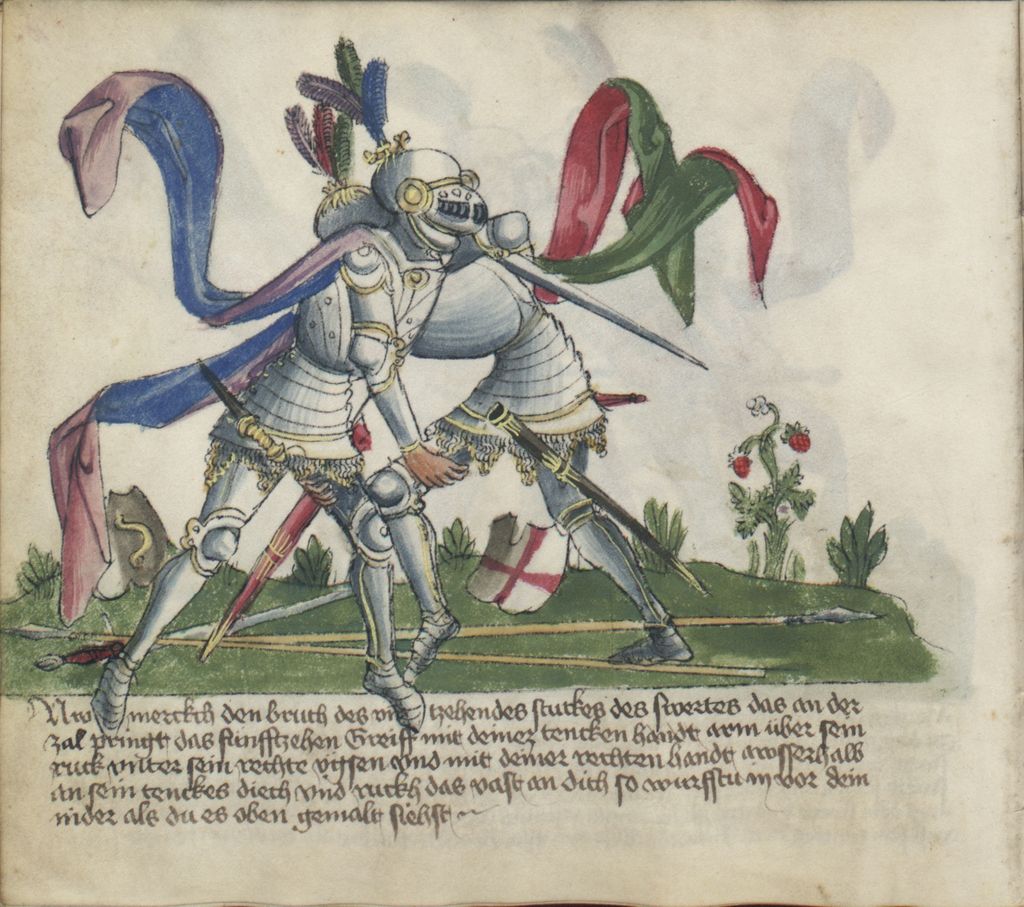 Nw merckch den bruch des vierzehendes stuckes des swertes das an der
zal pringt das funfftzehen Greiff mit deiner tencken handt arm über sein
ruck vnter sein rechte vchsen vnd mit deiner rechten handt awsserhalb
an sein tenckes diech vnd ruckh das vast an dich so wurfftu in vor dein
nider als du es oben gemalt siehst